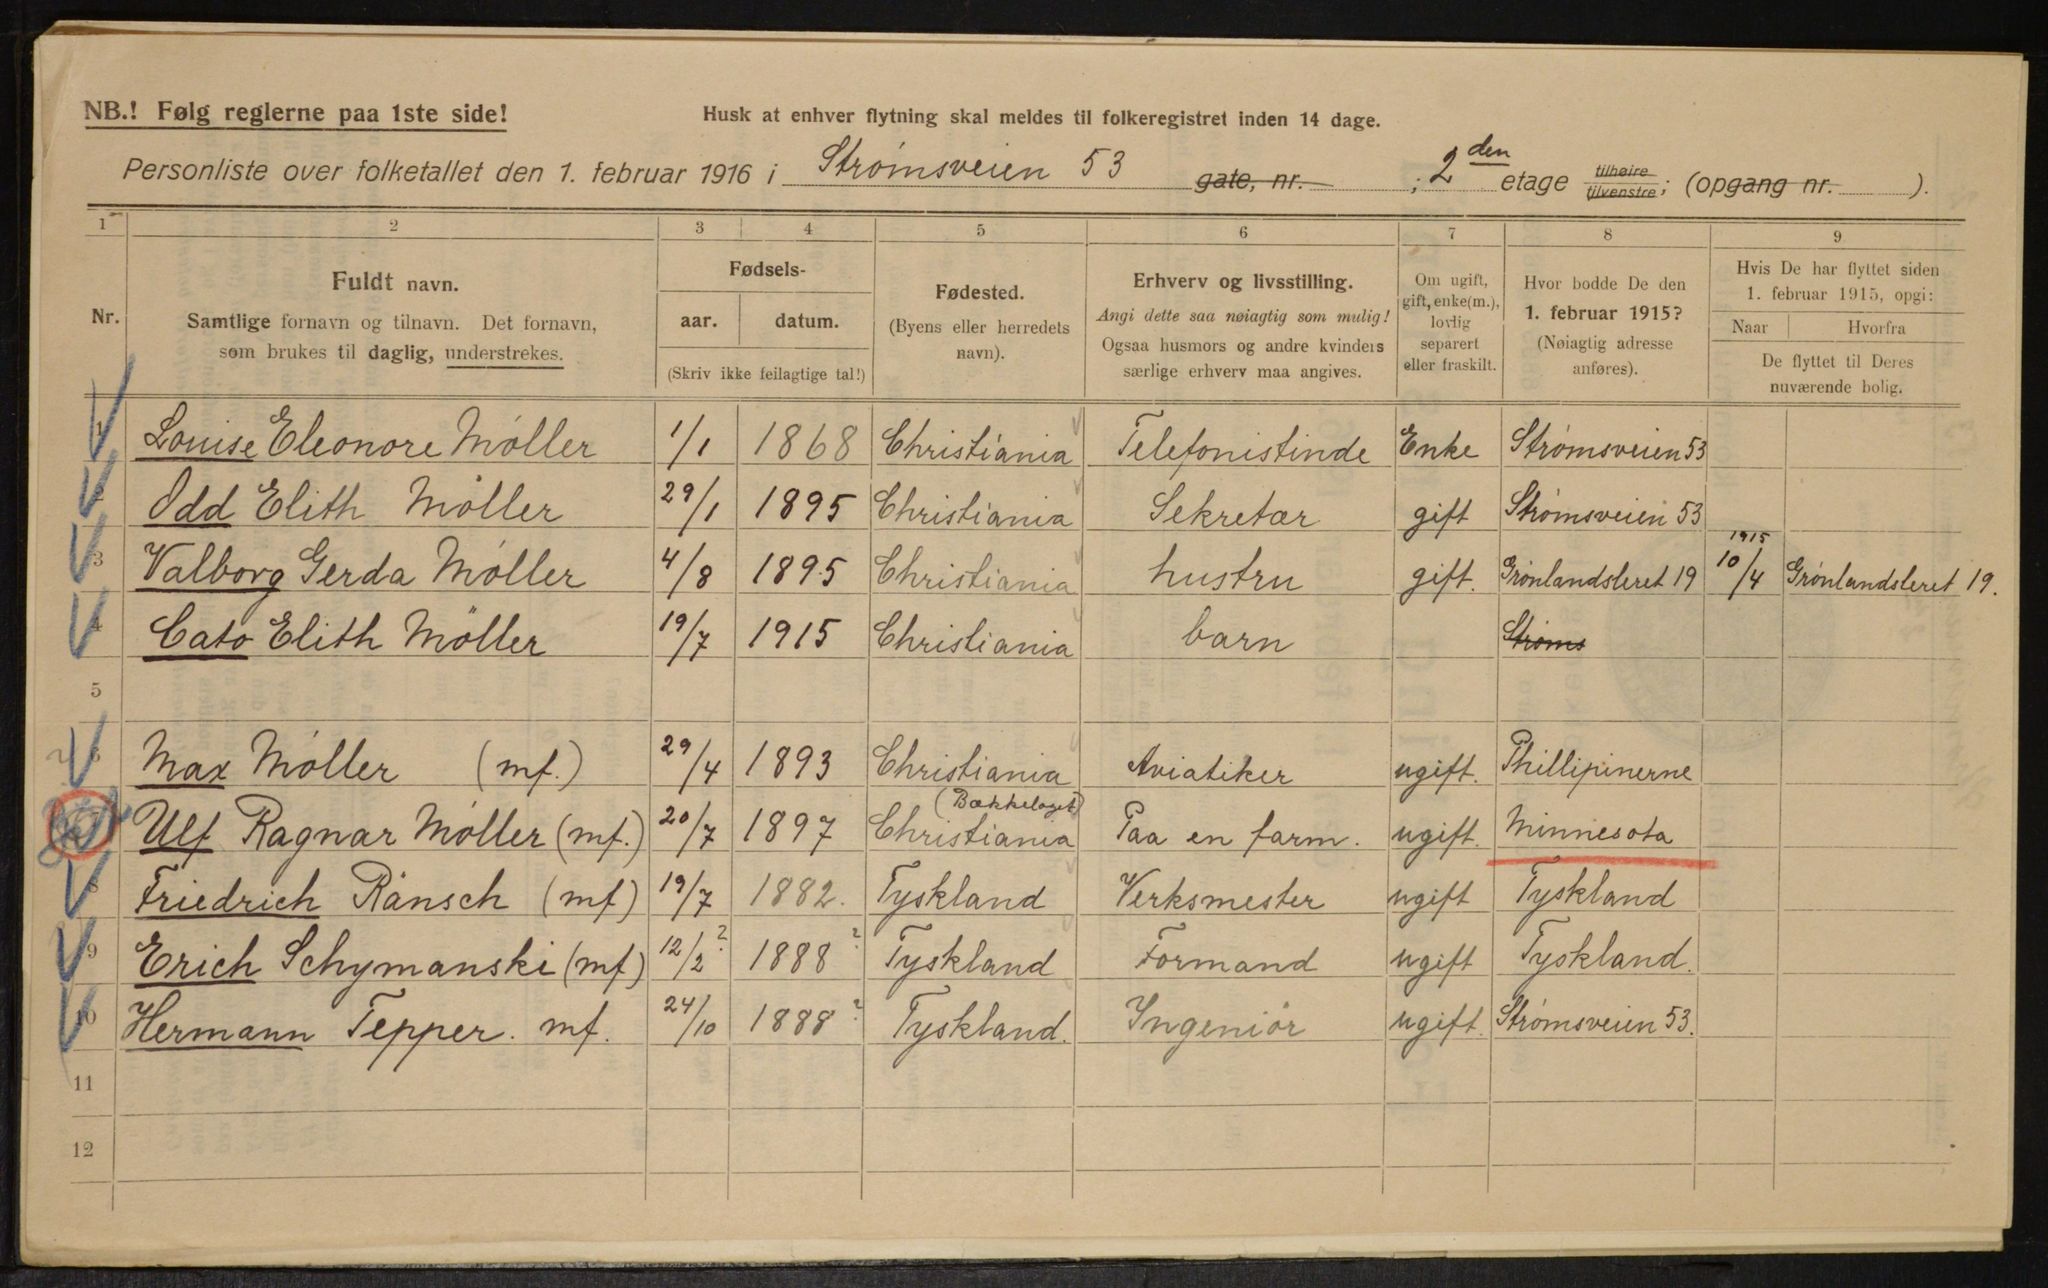 NB.! Følg reglerne paa 1ste side!
Husk at enhver flytning skal meldes til folkeregistret inden 14 dage.
Personliste over folketallet den 1. februar 1916 i Strømsveien 53 gate, nr. ; 2den etage tilhøire tilvenstre; (opgang nr. ).
1 2 3 4 5 6 7 8 9
Nr.
Fuldt navn.
Samtlige fornavn og tilnavn. Det fornavn,
som brukes til daglig, understrekes.
Fødsels-
aar. datum.
(Skriv ikke feilagtige tal!)
Fødested.
(Byens eller herredets
navn).
Erhverv og livsstilling.
Angi dette saa nøiagtig som mulig!
Ogsaa husmors og andre kvinders
særlige erhverv maa angives.
Om ugift,
gift, enke(m.),
lovlig
separert
eller fraskilt.
Hvor bodde De den
1. februar 1915?
(Nøiagtig adresse
anføres).
Hvis De har flyttet siden
1. februar 1915, opgi:
Naar Hvorfra
De flyttet til Deres
nuværende bolig.
1 Louise Eleonore Møller 1/1 1868 Christiania Telefonistinde Enke Strømsveien 53
2 Odd Elith Möller 29/1 1895 Christiania Sekretær gift Strømsveien 53
3 Valborg Gerda Møller 4/8 1895 Christiania hustru gift. Grønlandsleret 19 1915 10/4 Grønlandsleret 19.
4 Cato Elith Möller 19/7 1915 Christiania barn Strøms
5
6 Max Møller (mf.) 29/4 1893 Christiania Aviatiker ugift. Phillipinerne
7 Ulf Ragnar Møller (mf.) 20/7 1897 Christiania (Bækkelaget) Paa en farm. ugift. Minnesota
8 Friedrich Ränsch (mf) 19/7 1882. Tyskland Verksmester ugift Tyskland
9 Erich Schymanski (mf) 12/2 ? 1888 ? Tyskland Formand ugift Tyskland.
10 Hermann Tepper. mf. 24/10 1888 ? Tyskland. Ingeniør ugift. Strømsveien 53.
11
12